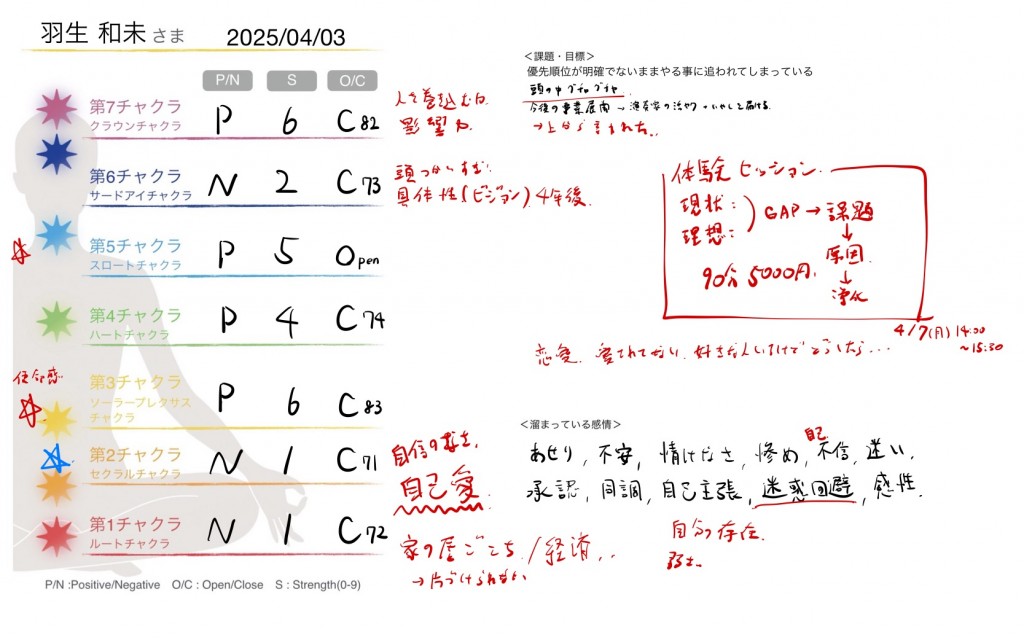 羽生 和未 さま
2025/04/03
P/N S O/C
第7チャクラ
クラウンチャクラ
P 6 C 82
人を巻き込む力
影響力
第6チャクラ
サードアイチャクラ
N 2 C 73
頭つかいすぎ
具体性(ビジョン)4年後
第5チャクラ
スロートチャクラ
P 5 Open
第4チャクラ
ハートチャクラ
P 4 C 74
使命感
第3チャクラ
ソーラープレクサス
チャクラ
P 6 C 83
第2チャクラ
セクラルチャクラ
N 1 C 71
自信のなさ
自己愛
第1チャクラ
ルートチャクラ
N 1 C 72
家の居ごこち/経済..
→片づけられない
P/N :Positive/Negative O/C : Open/Close S : Strength(0-9)
<課題・目標>
優先順位が明確でないままやる事に追われてしまっている
頭の中
今後の事業展開→
→上から言われた..
体験セッション
現状:
理想:
GAP→課題
↓
原因
↓
浄化
90分 5000円
4/7(月)14:00
~15:30
恋愛 愛されてない 好きな人
<溜まっている感情>
あせり, 不安, 情けなさ, 惨め, 自己不信, 迷い,
承認, 同調, 自己主張, 迷惑回避, 感性
自分の存在